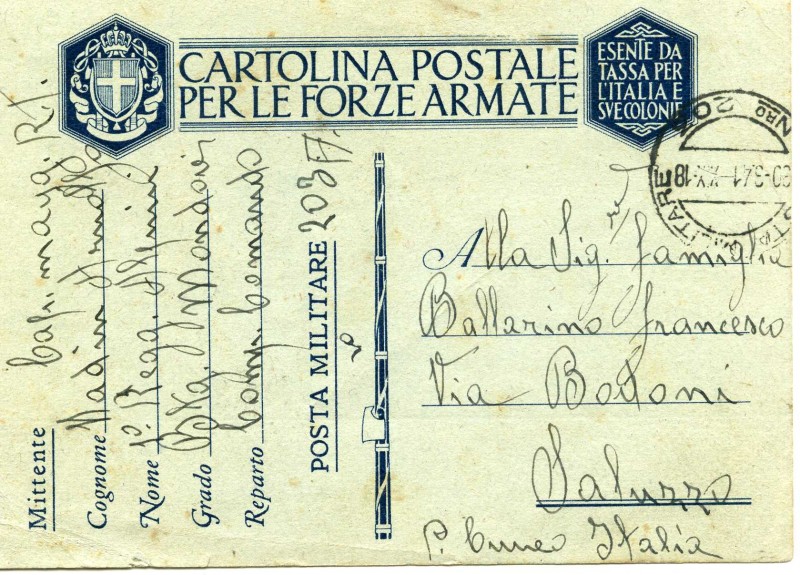 CARTOLINA POSTALE
PER LE FORZE ARMATE
ESENTE DA
TASSA PER
L'ITALIA E
SVE COLONIE
Mittente Cap. magg. R.T.
Cognome
Nome 1° Regg. Alpini
Grado Btg. Mondovì
Reparto Comp. Comando
POSTA MILITARE 203 A.
Alla Sig. famiglia
Ballarino francesco
Via Bodoni
Saluzzo
P. Cuneo Italia
MILITARE
NRO 203
20-3-41 XIX-18